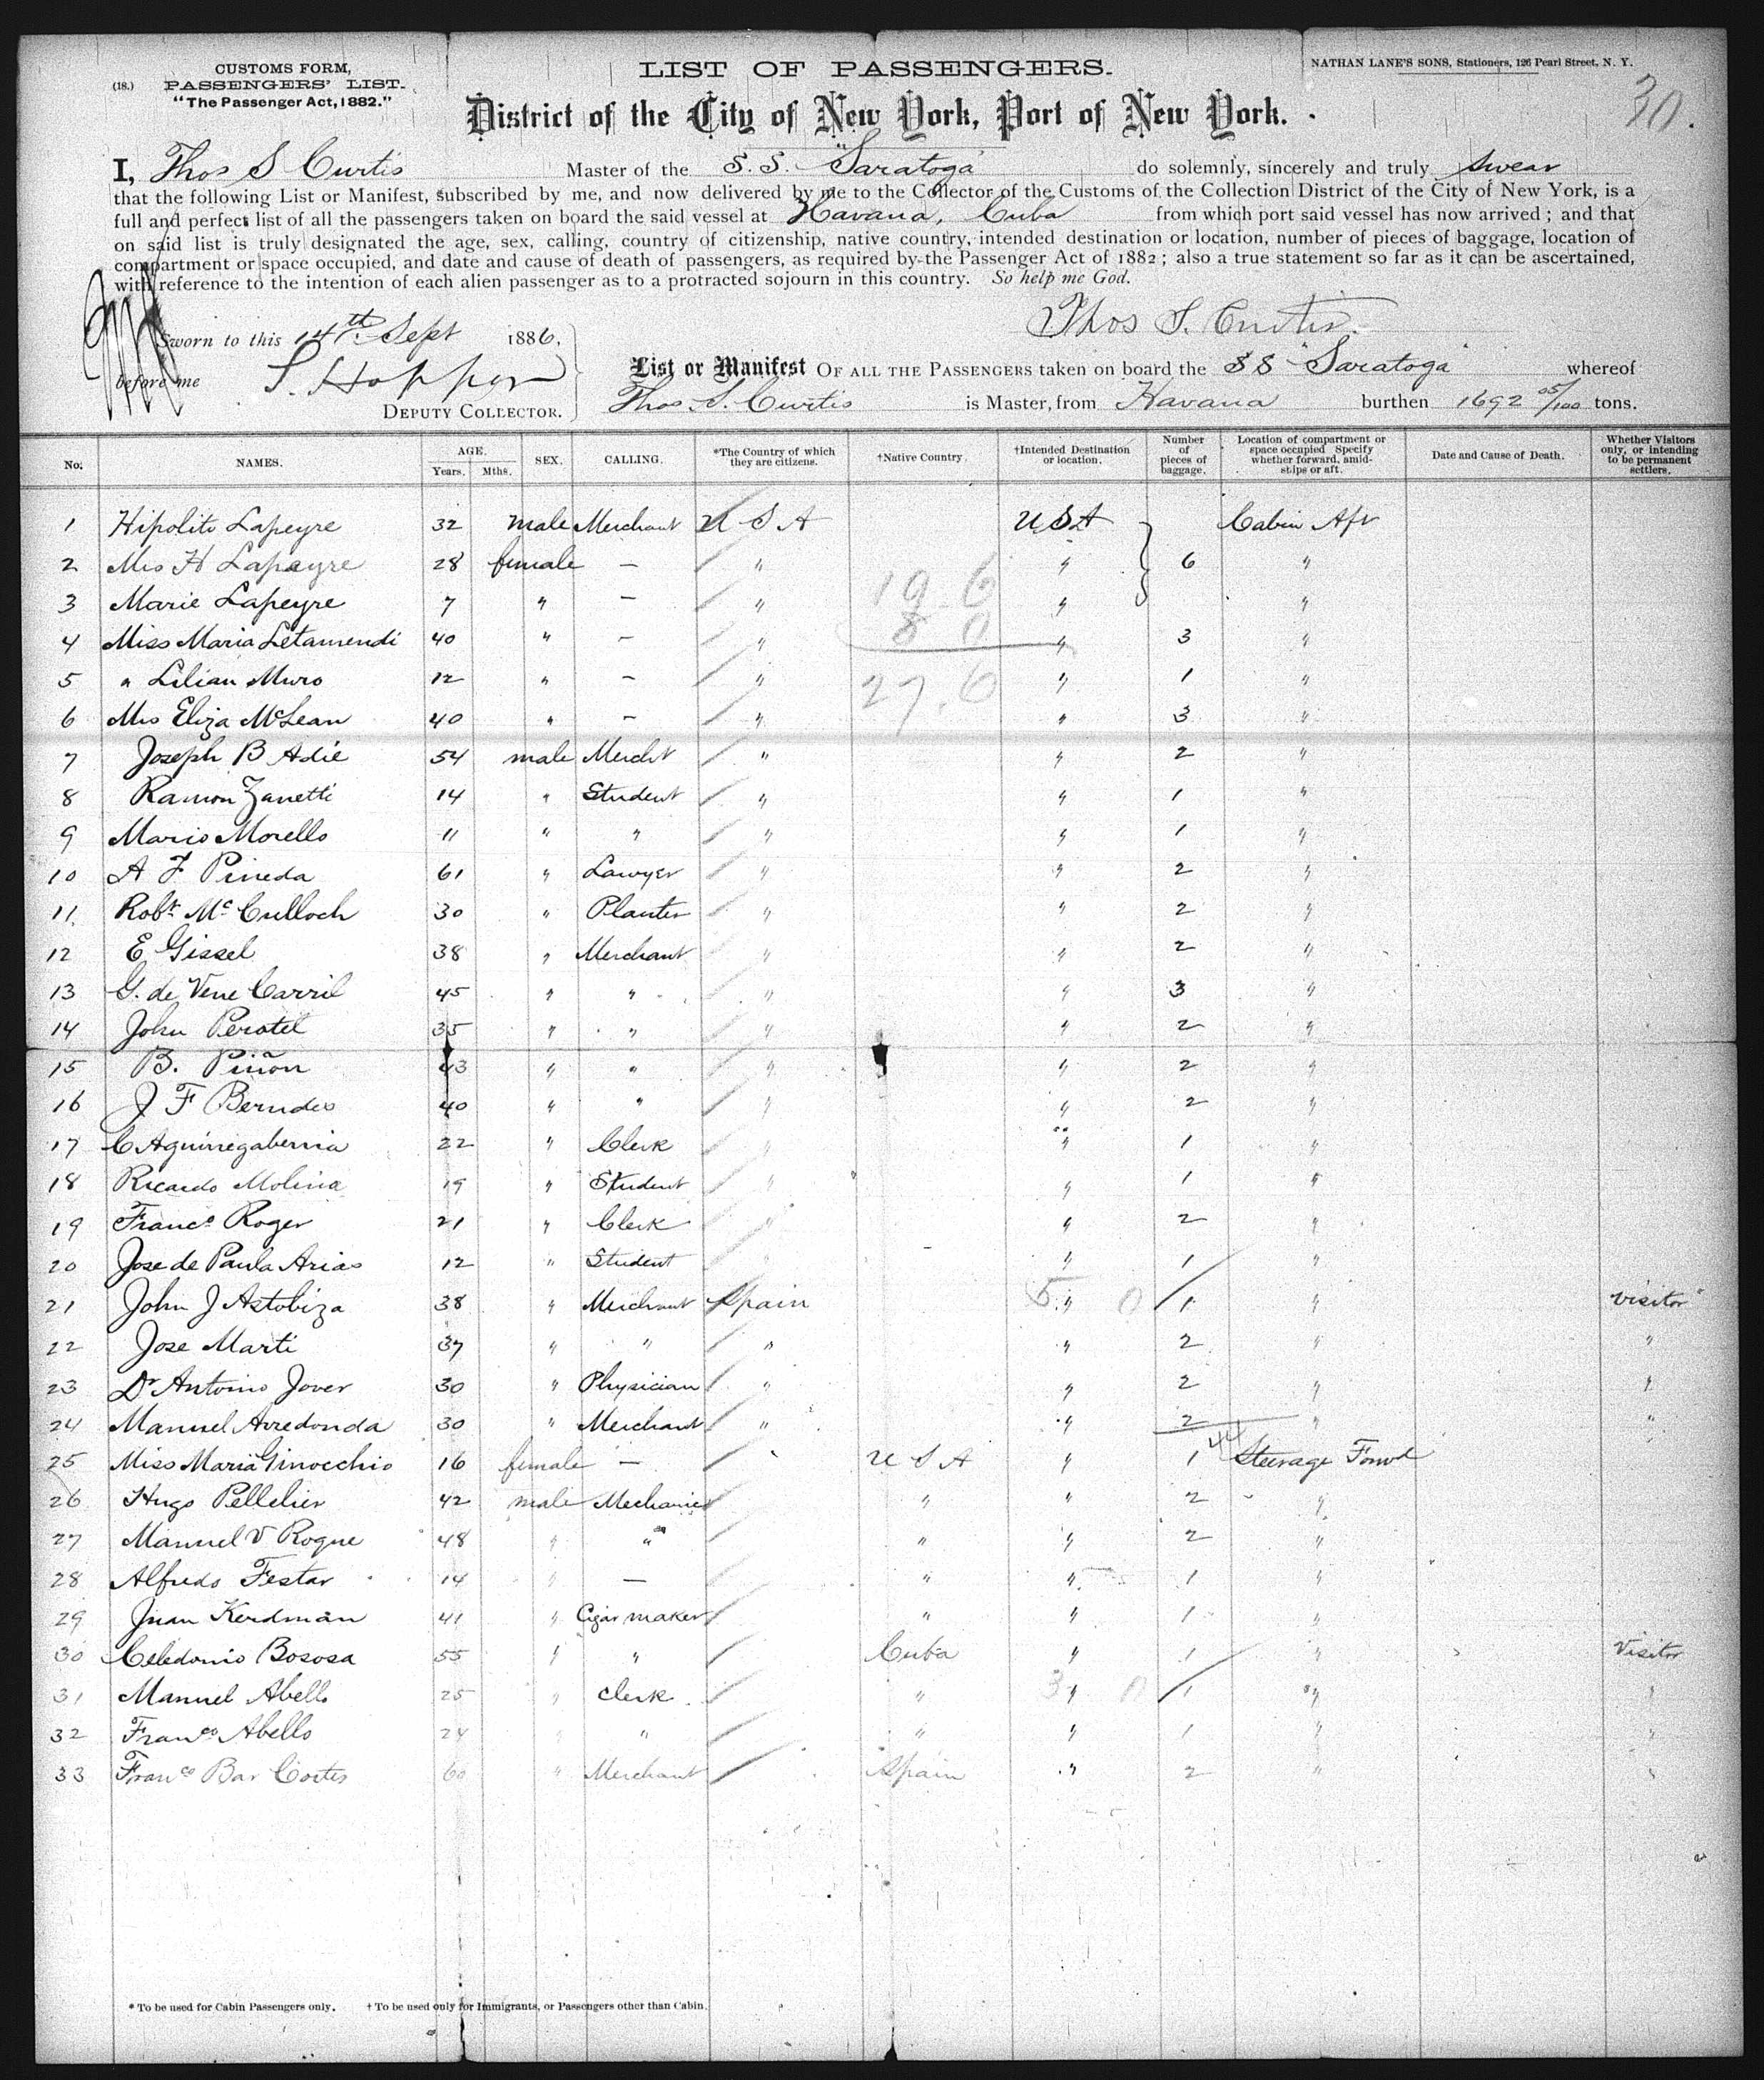 CUSTOMS FORM,
(18.) PASSENGERS' LIST.
"The Passenger Act, 1882."
LIST OF PASSENGERS.
NATHAN LANE'S SONS, Stationers, 126 Pearl Street, N. Y.
30.
District of the City of New York, Port of New York.
I, Thos S Curtis Master of the S.S. "Saratoga" do solemnly, sincerely and truly swear
that the following List or Manifest, subscribed by me, and now delivered by me to the Collector of the Customs of the Collection District of the City of New York, is a
full and perfect list of all the passengers taken on board the said vessel at Havana, Cuba from which port said vessel has now arrived; and that
on said list is truly designated the age, sex, calling, country of citizenship, native country, intended destination or location, number of pieces of baggage, location of
compartment or space occupied, and date and cause of death of passengers, as required by the Passenger Act of 1882; also a true statement so far as it can be ascertained,
with reference to the intention of each alien passenger as to a protracted sojourn in this country. So help me God.
Thos S. Curtis.
Sworn to this 14th Sept 1886,
before me S. Hopper
DEPUTY COLLECTOR.
List or Manifest OF ALL THE PASSENGERS taken on board the SS "Saratoga" whereof
Thos. S. Curtis is Master, from Havana burthen 1692 05/100 tons.
No. NAMES. AGE. Years. Mths. SEX. CALLING. *The Country of which they are citizens. †Native Country. †Intended Destination or location. Number of pieces of baggage. Location of compartment or space occupied Specify whether forward, amidships or aft. Date and Cause of Death. Whether Visitors only, or intending to be permanent settlers.
1 Hipolito Lapeyre 32 male Merchant U S A USA Cabin Aft
2 Mrs H Lapeyre 28 female — " " 6 "
3 Marie Lapeyre 7 " — " 19 6 " "
4 Miss Maria Letamendi 40 " — " 8 0 " 3 "
5 " Lilian Muro 12 " — " 27.6 " 1 "
6 Mrs Eliza McLean 40 " — " " 3 "
7 Joseph B Adie 54 male Mercht " " 2 "
8 Ramon Zanetti 14 " Student " " 1 "
9 Mario Morello 11 " " " " 1 "
10 A F Pineda 61 " Lawyer " " 2 "
11 Robt. McCulloch 30 " Planter " " 2 "
12 E Gissel 38 " Merchant " " 2 "
13 G. de Vene Carril 45 " " " " 3 "
14 John Perotel 35 " " " " 2 "
15 B. Piñon 43 " " " " 2 "
16 J F Berndes 40 " " " " 2 "
17 C Aguirregabernia 22 " Clerk " " 1 "
18 Ricardo Molina 19 " Student " " 1 "
19 Franco Roger 21 " Clerk " " 2 "
20 Jose de Paula Arias 12 " Student " " 1 "
21 John J Astobiza 38 " Merchant Spain 5 " 0 1 " visitor
22 Jose Marti 37 " " " " 2 " "
23 Dr Antonio Jover 30 " Physician " " 2 " "
24 Manuel Arredonda 30 " Merchant " " 2 " "
25 Miss Maria Ginocchio 16 female — U S A " 1 44 Steerage Forwd
26 Hugo Pelletier 42 male Mechanic " " 2 "
27 Manuel V Rogue 48 " " " " 2 "
28 Alfredo Festar 14 " — " " 1 "
29 Juan Kerdman 41 " Cigar maker " " 1 "
30 Celedonio Bososa 55 " " Cuba " 1 " Visitor
31 Manuel Abello 25 " Clerk " 3 " 0 1 " "
32 Franco Abello 24 " " " " 1 " "
33 Franco Bar Cortes 60 " Merchant Spain " 2 " "
* To be used for Cabin Passengers only. † To be used only for Immigrants, or Passengers other than Cabin.